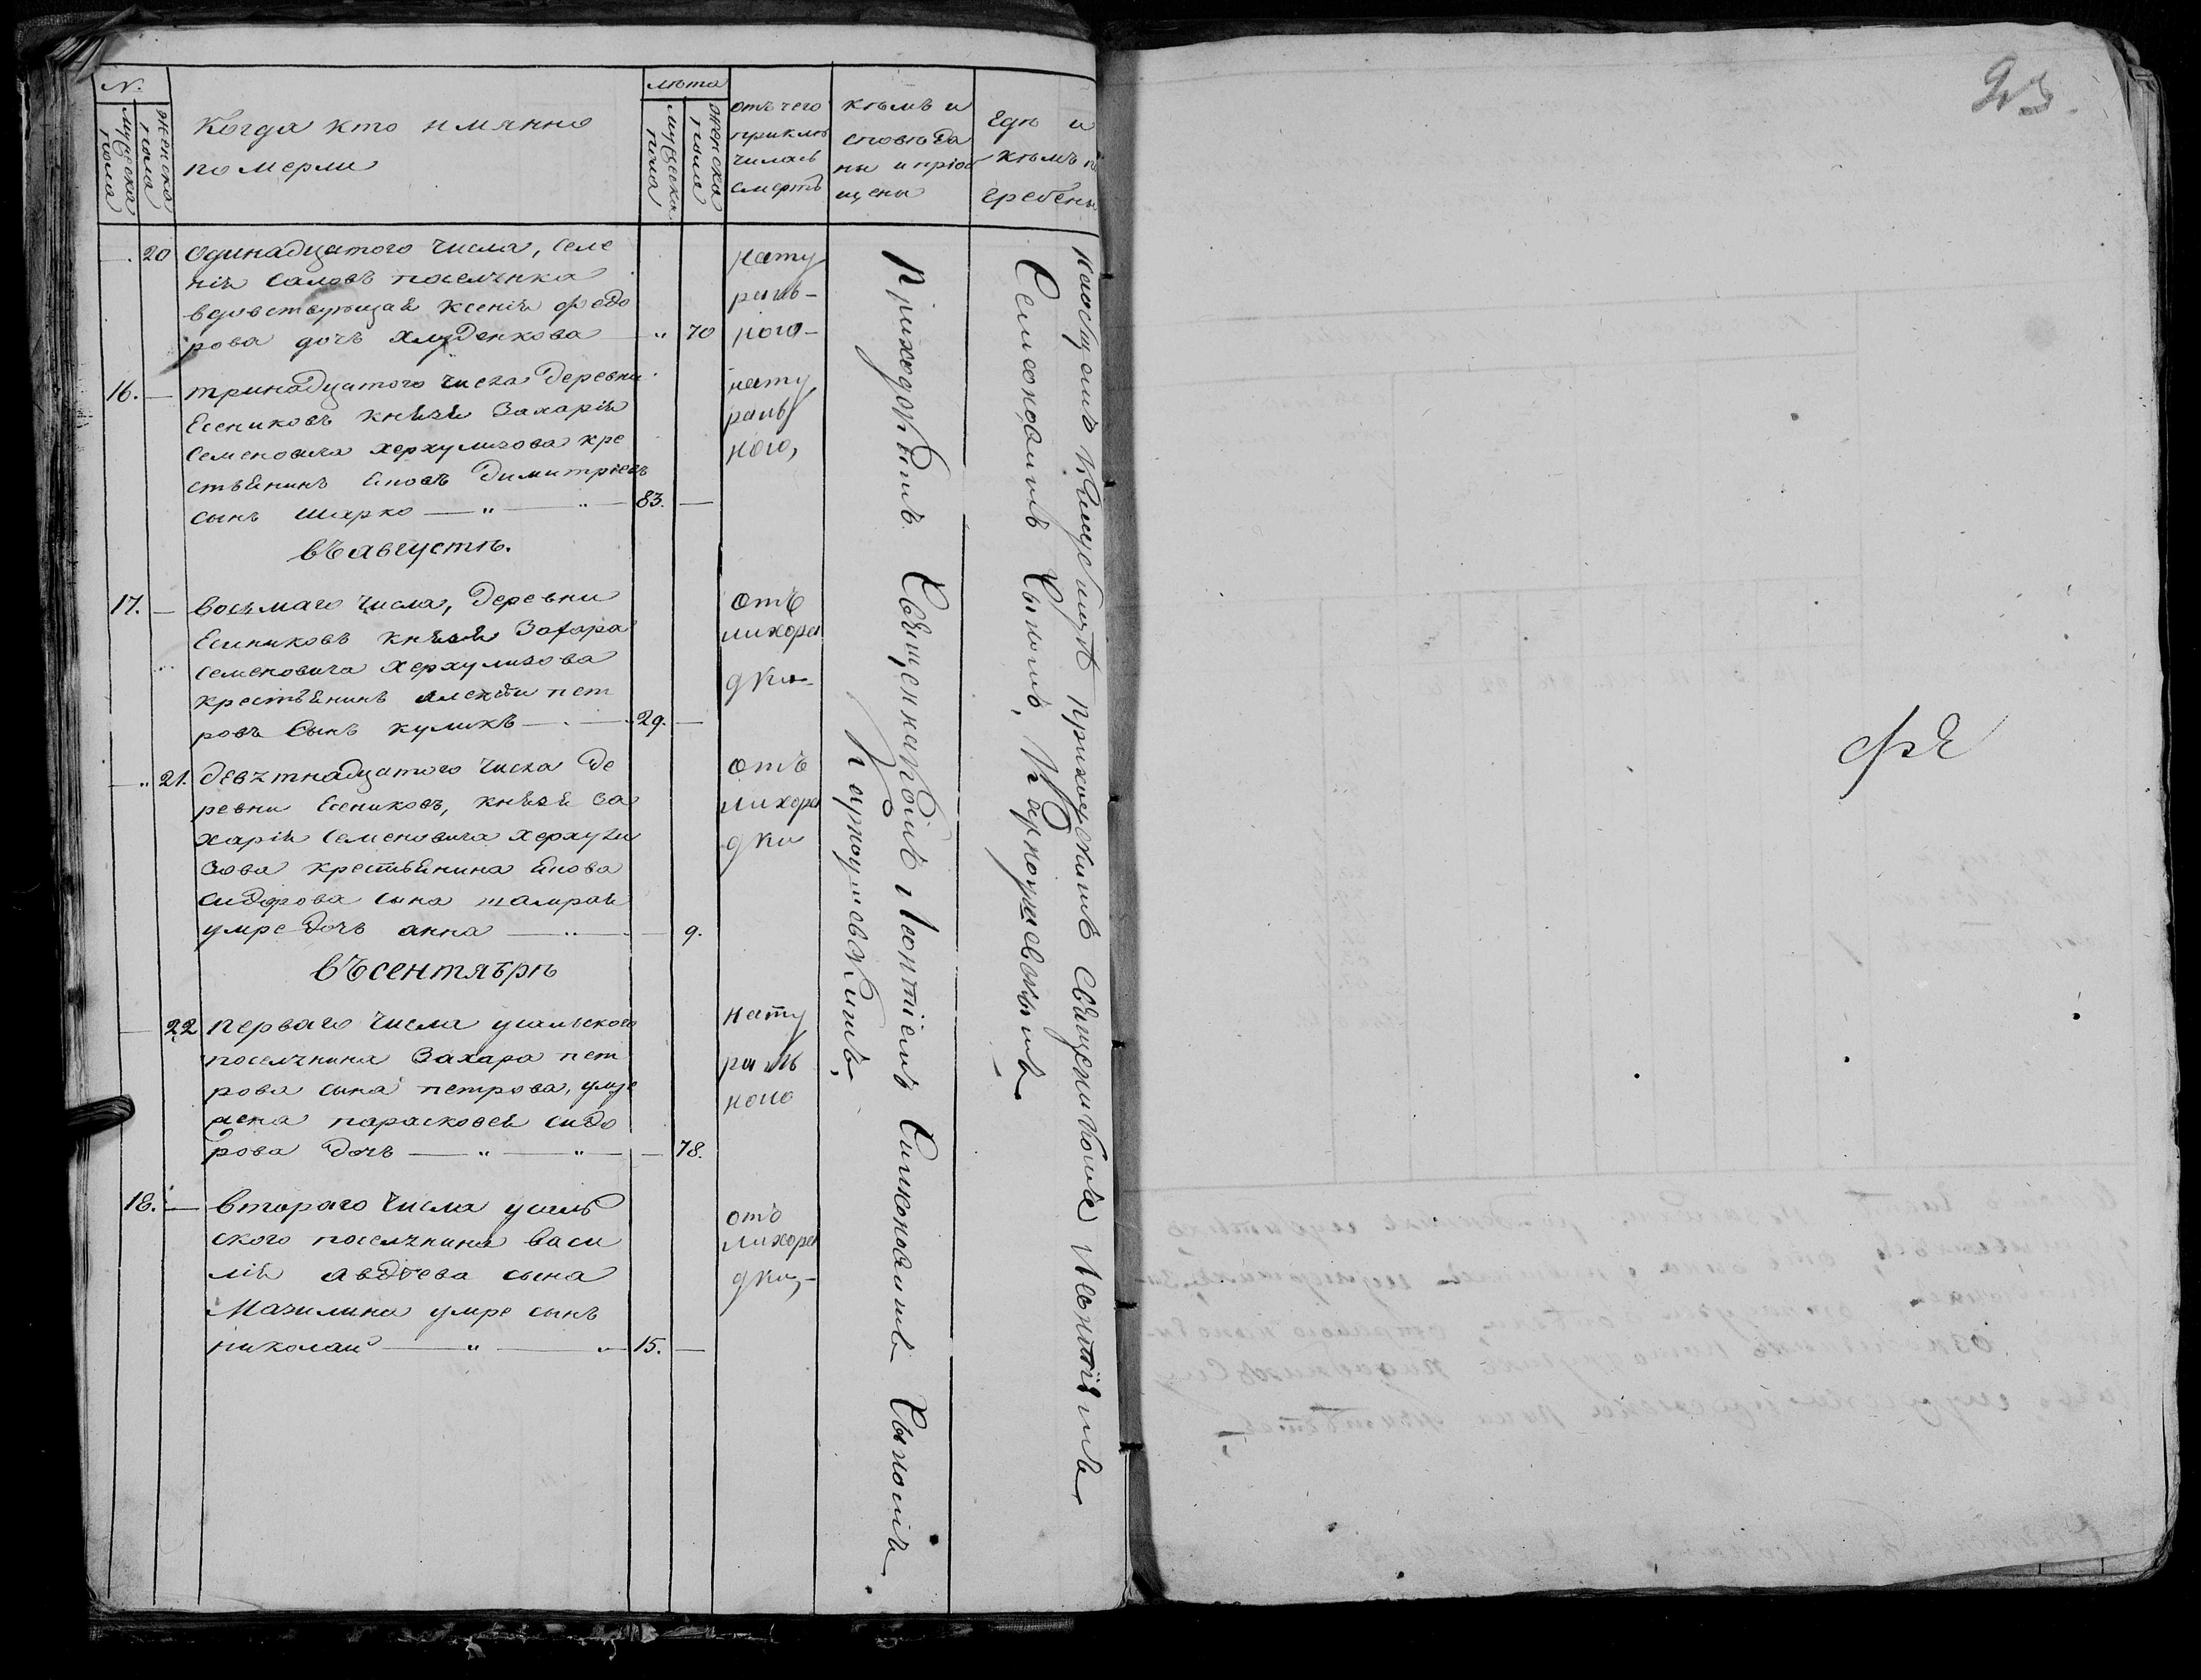 №.
мужеска пола
женска пола
Когда кто имянно
померли
лѣта
мужеска пола
женска пола
отъ чего
приклю
чилась
смерть
кѣмъ и
сповѣда
ны и пріоб
щены
гдѣ и
кѣмъ по
гребены
20 одинадцатого числа, селе
нія саловъ поселянка
вдовствующая ксенія федо
рова дочь Хлуденкова 70
нату
раль-
ного-
16. тринадцатого числа деревни
Есениковъ князя Захарія
Семеновича херхулизова кре
стьянинъ Іновъ Димитріевъ
сынъ шарко 83.
нату
раль
ного,
въ августѣ.
17. восьмаго числа, деревни
Есиниковъ князя Захара
Семеновича Херхулизова
крестьянинъ алексѣи пет
ровъ сынъ куликъ 29.
отъ
лихора
дки-
21. девятнадцатого числа де
ревни Есениковъ, князя За
харія Семеновича Херхули
зова крестьянина Інова
сидорова сына
умре дочь анна 9.
отъ
лихора
дки
въ сентябрѣ
22 перваго числа
поселянина Захара пет
рова сына петрова, умре
жена парасковея сидо
рова дочь 78.
нату
раль
ного
18. втораго числа
ского поселянина васи
лія авдѣева сына
Мазилина умре сынъ
николаи 15.
отъ
лихора
дки,-
Приходскимъ Священникомъ Леонтіемъ Симоновымъ Сыномъ
Карпоушевскимъ,
на общемъ кладбищѣ приходскимъ Священникомъ Леонтіемъ
Семеновымъ Сыномъ, Карпоушевскимъ
23.